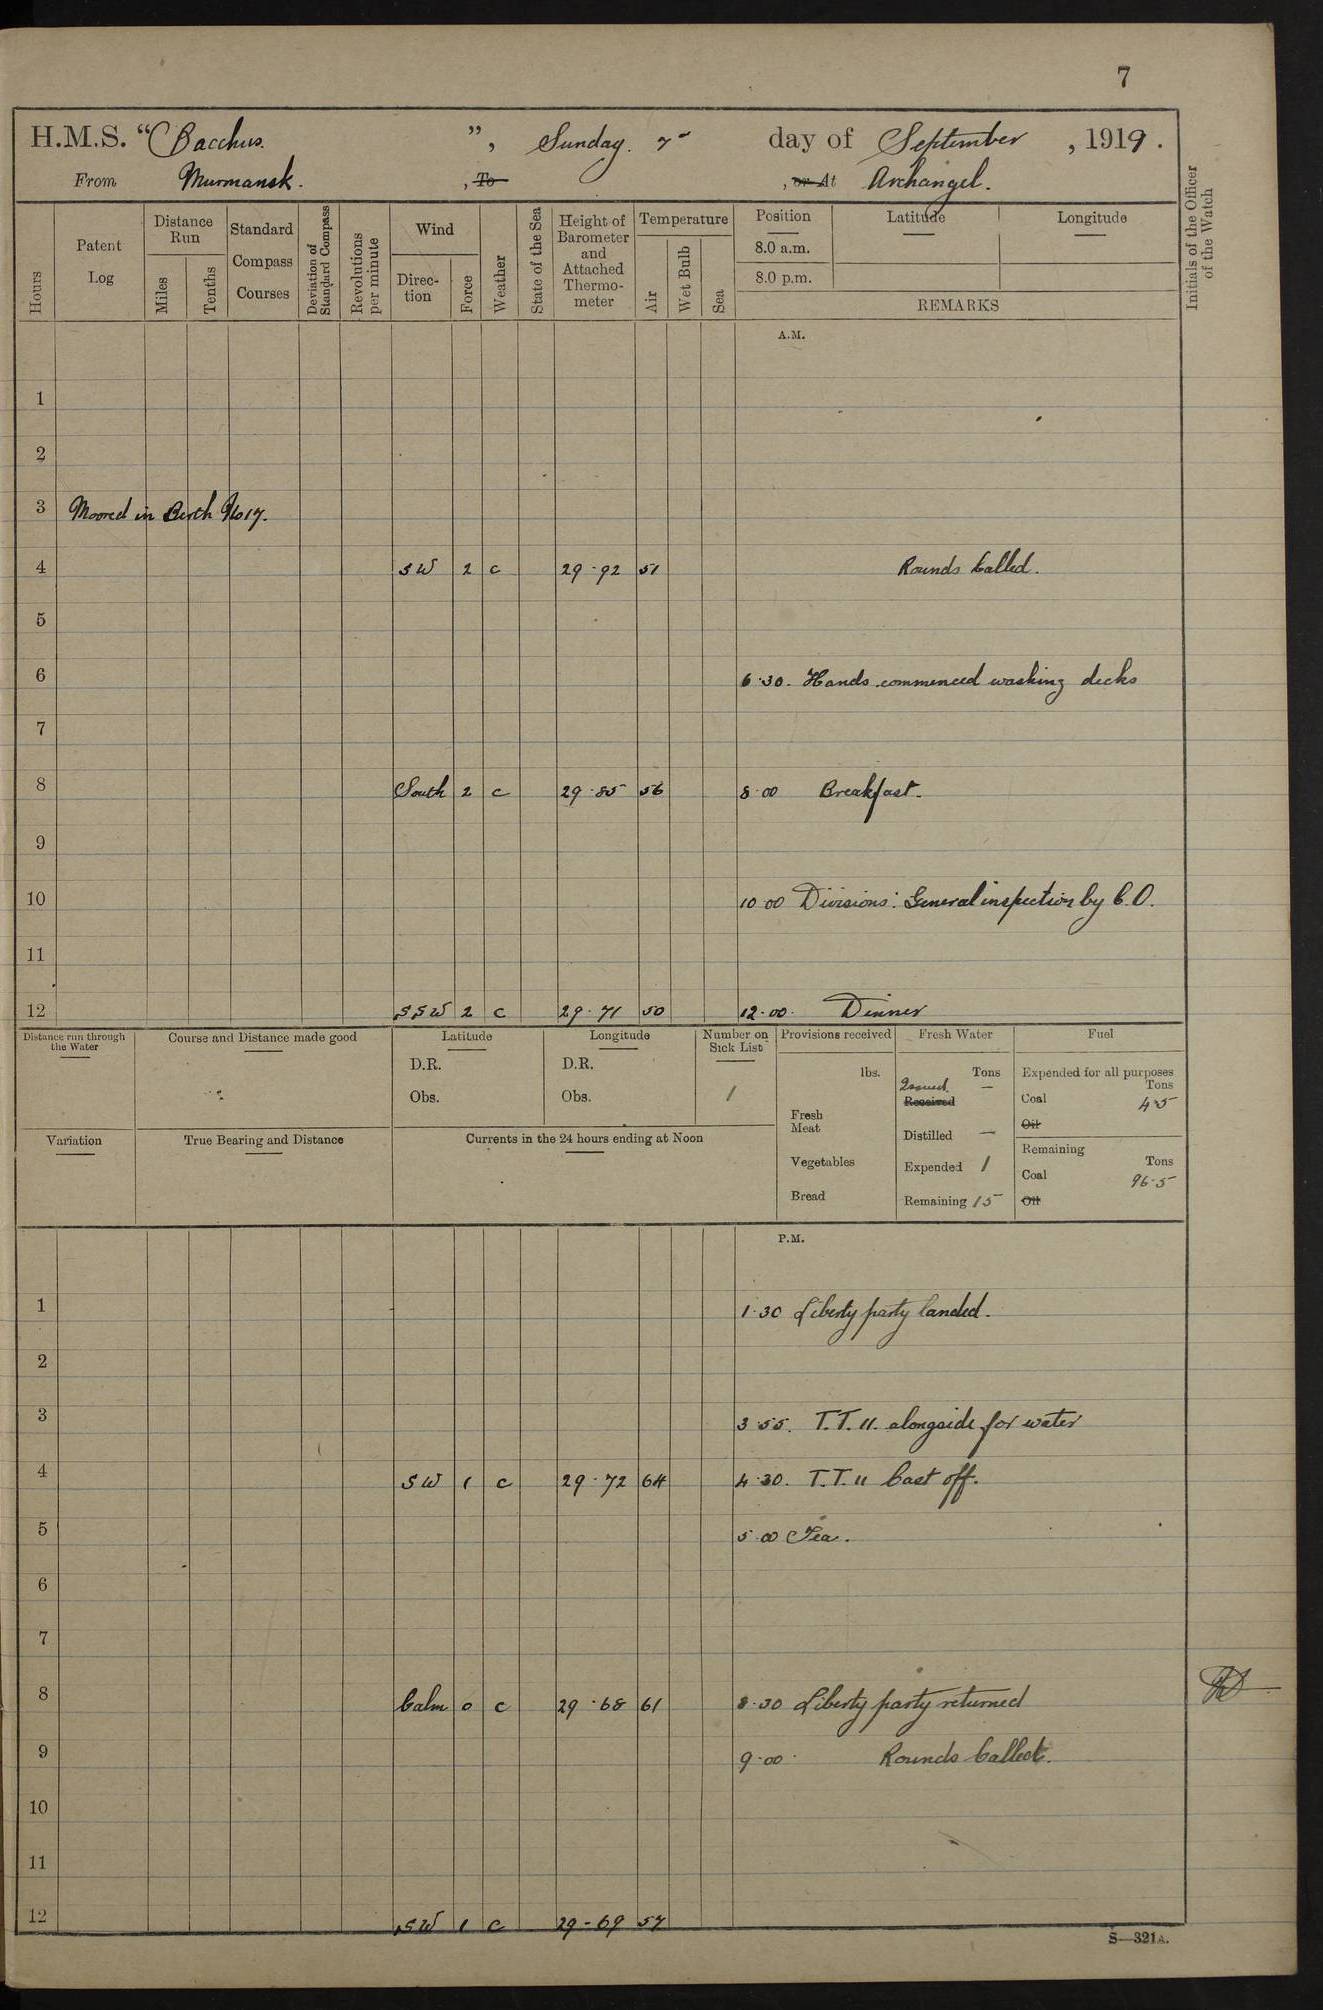 7
H.M.S. "Bacchus.", Sunday. 7 day of September, 1919.
From Murmansk., To, or At Archangel.
Hours
Patent Log
Distance Run
Miles
Tenths
Standard Compass Courses
Deviation of Standard Compass
Revolutions per minute
Wind
Direction
Force
Weather
State of the Sea
Height of Barometer and Attached Thermometer
Temperature
Air
Wet Bulb
Sea
Position Latitude Longitude
8.0 a.m.
8.0 p.m.
REMARKS
Initials of the Officer of the Watch
A.M.
1
2
3 Moored in Berth No 17.
4 SW 2 c 29·92 51 Rounds Called.
5
6 6·30. Hands commenced washing decks
7
8 South 2 c 29·85 56 8·00 Breakfast.
9
10 10·00 Divisions: General inspection by C.O.
11
12 SSW 2 c 29·71 50 12·00. Dinner
Distance run through the Water
Course and Distance made good
Latitude
D.R.
Obs.
Longitude
D.R.
Obs.
Number on Sick List
1
Provisions received
lbs.
Fresh Meat
Vegetables
Bread
Fresh Water
Tons
Issued —
Received
Distilled —
Expended 1
Remaining 15
Fuel
Expended for all purposes
Tons
Coal 4·5
Oil
Remaining
Tons
Coal 96·5
Oil
Variation
True Bearing and Distance
Currents in the 24 hours ending at Noon
P.M.
1 1·30 Liberty party landed.
2
3 3·55. T.T. 11. alongside for water
4 SW 1 c 29·72 64 4·30. T.T. 11 Cast off.
5 5·00 Tea.
6
7
8 Calm 0 c 29·68 61 8·30 Liberty party returned
9 9·00· Rounds Called.
10
11
12 SW 1 c 29-69 57
S—321A.